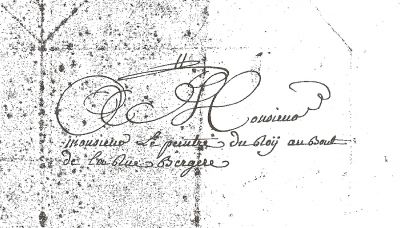 A Monsieur
monsieur Le peintre du Roÿ au Bout
de La Rue Bergere